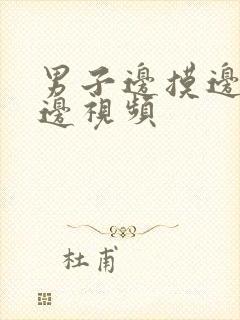 男子邊摸邊
邊視頻
杜甫